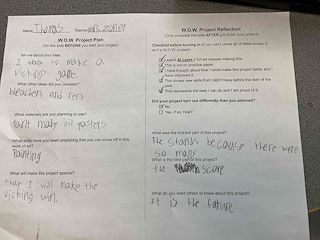 Name: Thomas Teacher: Mrs. Zoller
W.O.W. Project Plan
(Do this side BEFORE you start your project)
Tell me about your idea.
I want to make a
vickings game.
What other ideas did you consider?
bleachers and
What materials are you planning to use?
oil pasters
What skills have you been practicing that you can show off in this
work of art?
Painting
What will make this project special?
that I will make the
vicking win.
W.O.W. Project Reflection
(Only complete this side AFTER you finish your project)
Checklist before turning in (if you can't check all of these boxes, it
isn't a W.O.W. project!)
I spent At Least 2 full art classes making this
This is not on practice paper.
I have thought about how I could make the project better and I
have improved it.
This shows new skills that I didn't have before the start of the
year.
This represents the best I can do and I am proud of it.
Did your project turn out differently than you planned?
No
Yes, if so, how?
What was the trickiest part of this project?
The stands because there were
so many
What is the best part of this project?
the Score
What do you want others to know about this project?
It is the future